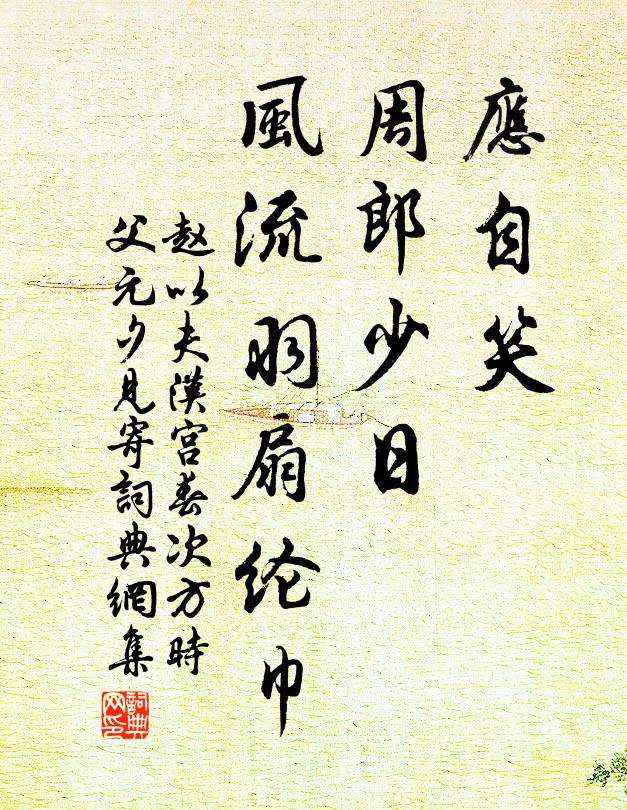 應自笑
周郎少日
風流羽扇纶巾
赵以夫漢宮春次方時
父元夕見寄詞典網集
詞典网印